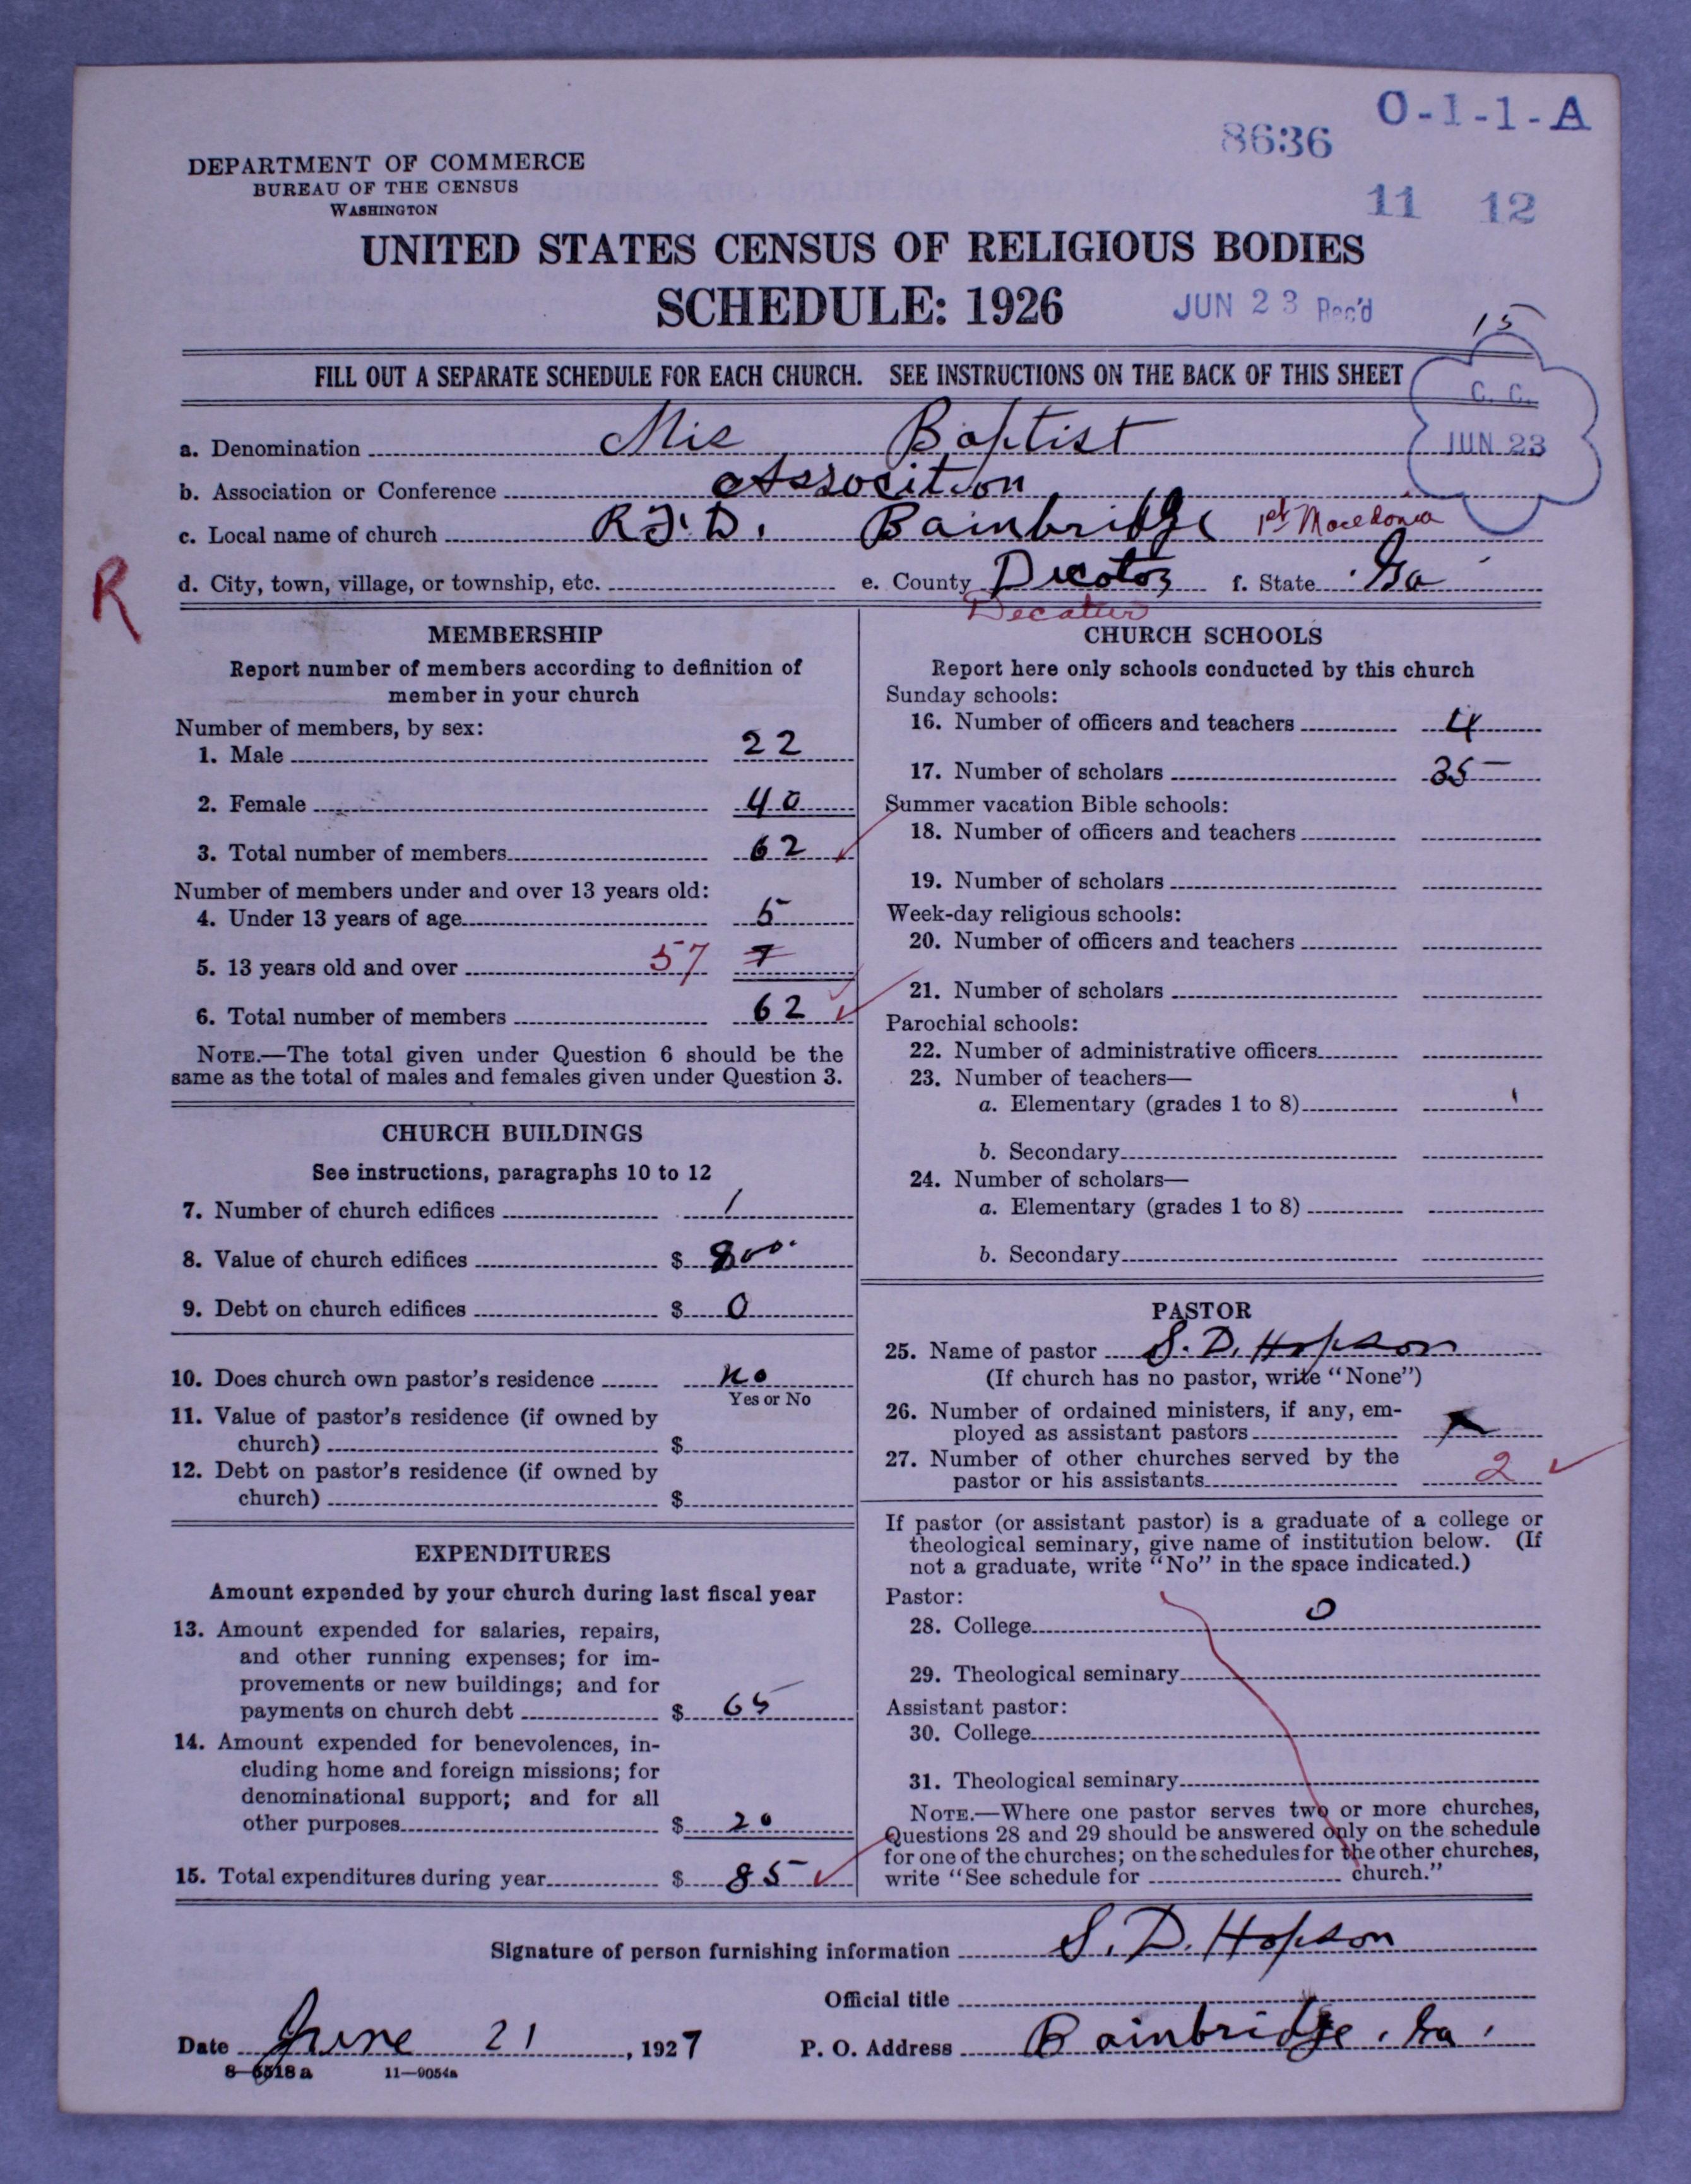 O-1-1-A
8636
11 12
DEPARTMENT OF COMMERCE
BUREAU OF THE CENSUS
WASHINGTON
UNITED STATES CENSUS OF RELIGIOUS BODIES
SCHEDULE: 1926
JUN 23 Rec'd
15
FILL OUT A SEPARATE SCHEDULE FOR EACH CHURCH. SEE INSTRUCTIONS ON THE BACK OF THIS SHEET
C. C.
JUN 23
a. Denomination Mis Baptist
b. Association or Conference Assocition
c. Local name of church R.F.D. Bainbridge 1st Macedonia
R
d. City, town, village, or township, etc. e. County Decator f. State Ga
Decatur
MEMBERSHIP
Report number of members according to definition of
member in your church
Number of members, by sex:
1. Male 22
2. Female 40
3. Total number of members 62
Number of members under and over 13 years old:
4. Under 13 years of age 5
5. 13 years old and over 57 7
6. Total number of members 62
NOTE.—The total given under Question 6 should be the
same as the total of males and females given under Question 3.
CHURCH BUILDINGS
See instructions, paragraphs 10 to 12
7. Number of church edifices 1
8. Value of church edifices $ 800
9. Debt on church edifices $ 0
10. Does church own pastor's residence no
Yes or No
11. Value of pastor's residence (if owned by
church) $
12. Debt on pastor's residence (if owned by
church) $
EXPENDITURES
Amount expended by your church during last fiscal year
13. Amount expended for salaries, repairs,
and other running expenses; for im-
provements or new buildings; and for
payments on church debt $ 65
14. Amount expended for benevolences, in-
cluding home and foreign missions; for
denominational support; and for all
other purposes $ 20
15. Total expenditures during year $ 85
CHURCH SCHOOLS
Report here only schools conducted by this church
Sunday schools:
16. Number of officers and teachers 4
17. Number of scholars 35
Summer vacation Bible schools:
18. Number of officers and teachers
19. Number of scholars
Week-day religious schools:
20. Number of officers and teachers
21. Number of scholars
Parochial schools:
22. Number of administrative officers
23. Number of teachers—
a. Elementary (grades 1 to 8)
b. Secondary
24. Number of scholars—
a. Elementary (grades 1 to 8)
b. Secondary
PASTOR
25. Name of pastor S. D. Hopson
(If church has no pastor, write "None")
26. Number of ordained ministers, if any, em-
ployed as assistant pastors
27. Number of other churches served by the
pastor or his assistants 2
If pastor (or assistant pastor) is a graduate of a college or
theological seminary, give name of institution below. (If
not a graduate, write "No" in the space indicated.)
Pastor:
28. College 0
29. Theological seminary
Assistant pastor:
30. College
31. Theological seminary
NOTE.—Where one pastor serves two or more churches,
Questions 28 and 29 should be answered only on the schedule
for one of the churches; on the schedules for the other churches,
write "See schedule for church."
Signature of person furnishing information S. D. Hopson
Official title
Date June 21, 1927 P. O. Address Bainbridge, Ga.
8-5518a 11-9054a